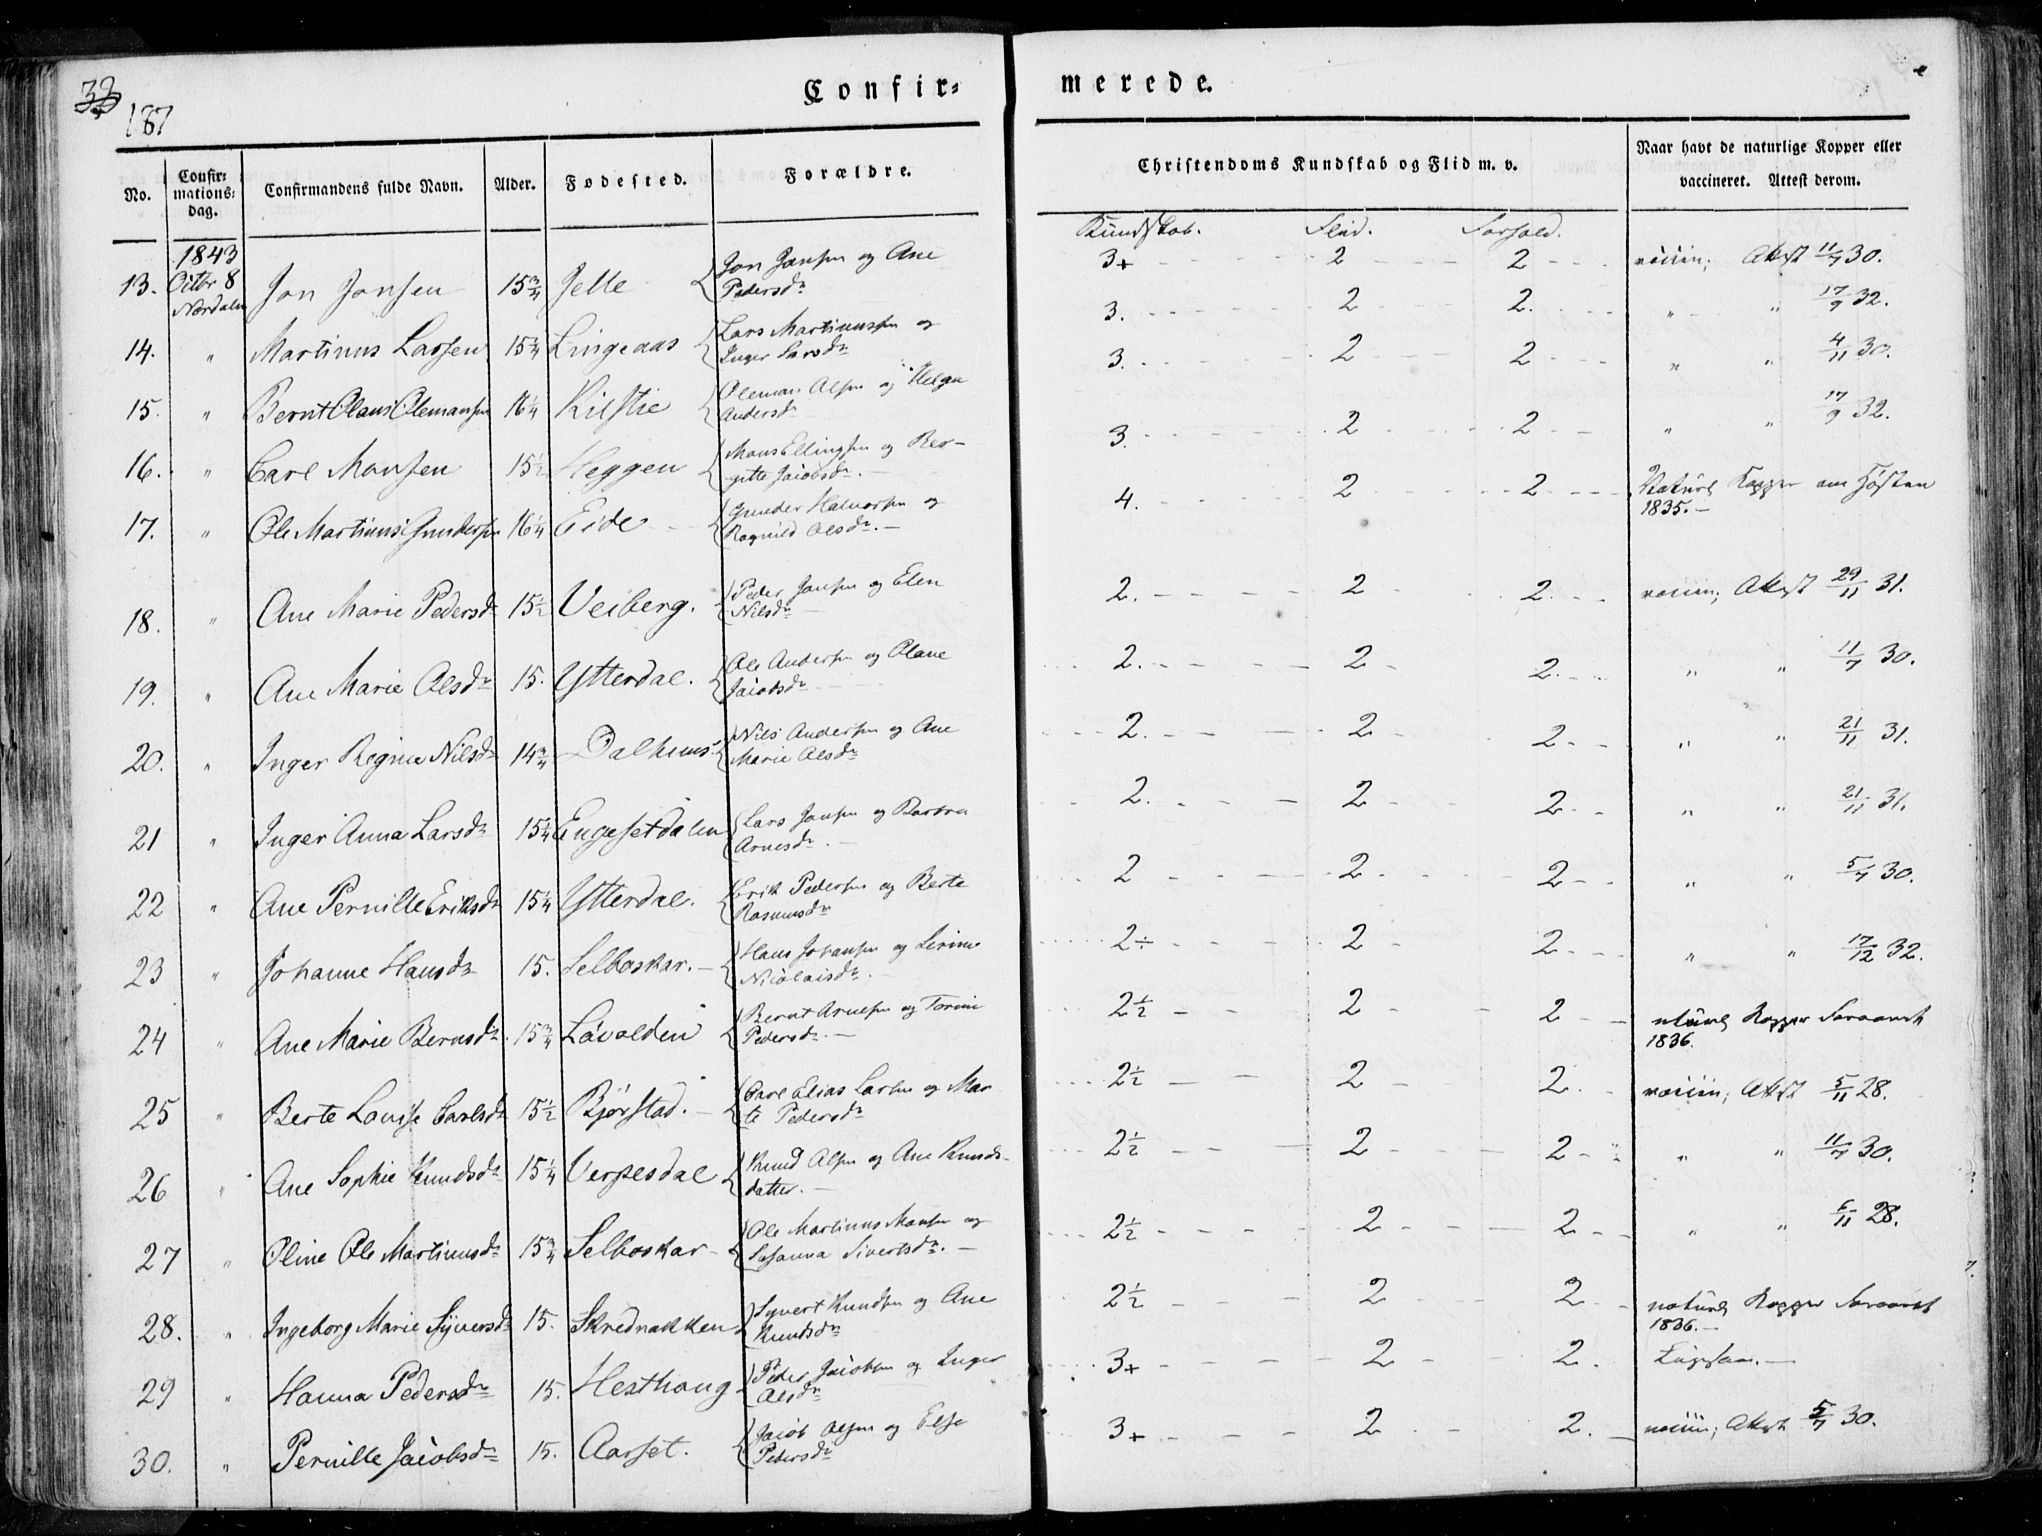 33
187
Confir= merede.
No. Confir= mations= dag. Confirmandens fulde Navn. Alder. Fødested. Forældre. Christendoms Kundskab og Flid m. v. Naar havt de naturlige Kopper eller vaccineret. Attest derom.
Kundskab. Flid. Forhold.
13. 1843 Octbr 8 Nordalen Jon Jonsen 15 3/4 Jelle Jon Jonsen og Ane Pedersdr 3+ 2 2 vaccin; Attest 11/7 30.
14. " Martinus Larsen 15 1/4 Lingeaas Lars Martinussen og Inger Larsdr 3. 2 2. " " 17/9 32.
15. " Bernt Olaus Olemansen 16 1/4 Kilstie Oleman Olsen og Helga Andersdr 3. 2 2 " " 4/11 30.
16. " Carl Monsen 15 1/2 Heggen Mons Ellingsen og Bergitte Jacobsdr. 3. 2 2 " " 17/9 32.
17. " Ole Martinus Gundersen 16 1/4 Eide Gunder Halvorsen og Ragnild Olsdr. 4. 2 2 Naturl Kopper om Høsten 1835.
18. " Ane Marie Pedersdr 15 1/2 Veiberg. Peder Jonsen og Elen Nilsdr 2. 2 2. vaccin; Attest 29/11 31.
19. " Ane Marie Olsdr 15. Ytterdal. Ole Andersen og Olave Jacobsdr 2. 2 2. " " 11/7 30.
20. " Inger Regine Nilsdr 14 3/4 Dalhuus Nils Andersen og Ane Marie Olsdr 2. 2 2 " " 21/11 31.
21 " Inger Anna Larsdr 15 1/4 Engesetdalen Lars Jonsen og Barbra Arnesdr. 2. 2 2 " " 21/11 31.
22 " Ane Pernille Eriksdr 15 1/4 Ytterdal. Erik Pedersen og Berte Rasmusdr 2 2 2 " " 5/7 30.
23 " Johanne Hansdr 15. Selboskar. Hans Johansen og Sirine Nicolaisdr 2÷ 2 2 " " 17/12 32.
24 " Ane Marie Bernsdr. 15 3/4 Løvolden Bernt Arnesen og Torine Pedersdr. 2 1/2 2 2 naturl Kopper Foraaret 1836.
25 " Berte Louise Carlsdr 15 1/2 Bjørstad. Carl Elias Larsen og Marte Pedersdr 2 1/2 2 2. vaccin; Attest 5/11 28.
26 " Ane Sophie Knudsdr 15 1/4 Verpesdal Knud Olsen og Ane Knudsdatter. 2 1/2 2 2 " " 11/7 30.
27 " Oline Ole Martinusdr 15 3/4 Selboskar Ole Martinus Monsen og Susanna Sivertsdr. 2 1/2 2 2 " " 6/11 28.
28. " Ingeborg Marie Syversdr 15. Skrednakken Syvert Knudsen og Ane Knudsdr 2 1/2 2 2 naturl Kopper Foraaret 1836.
29 " Hanna Pedersdr 15. Hesthaug Peder Jacobsen og Inger Olsdr 3+ 2 2. Ligesaa.
30. " Pernille Jacobsdr 15. Aarset. Jacob Olsen og Else Pedersdr 3+ 2 2. vaccin; Attest 5/7 30.